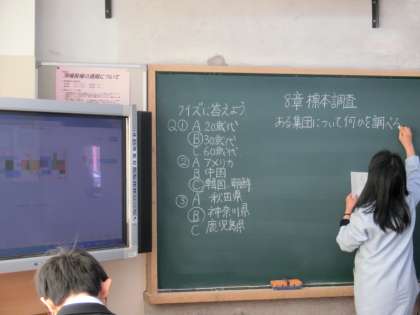 クイズに答えよう
Q① A 20歳代
Ⓑ 30歳代
C 60歳代
② A アメリカ
B 中国
Ⓒ 韓国・朝鮮
③ A 秋田県
Ⓑ 神奈川県
C 鹿児島県
8章 標本調査
ある集団について何かを調べる